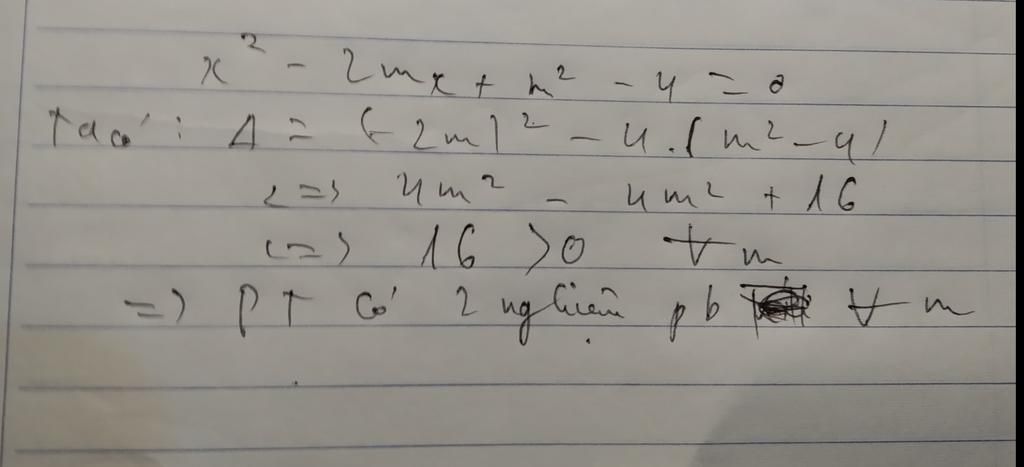 x² - 2mx + m² - 4 = 0
Ta có: Δ = (-2m)² - 4.(m² - 4)
<=> 4m² - 4m² + 16
<=> 16 > 0 ∀ m
=> PT có 2 nghiệm pb ∀ m